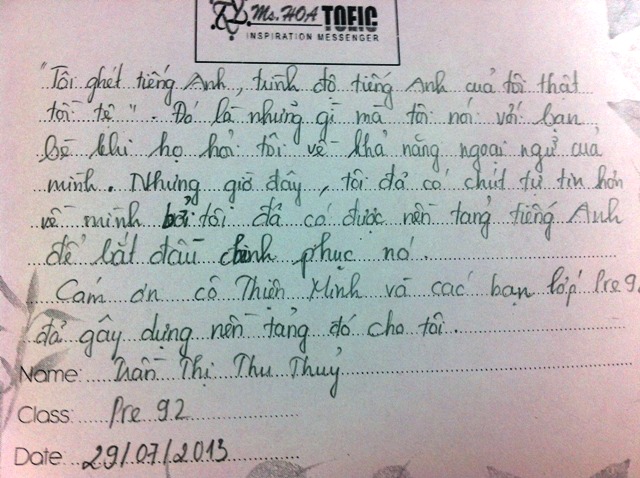 Ms. HOA TOEIC
INSPIRATION MESSENGER
"Tôi ghét tiếng Anh, trình độ tiếng Anh của tôi thật
tồi tệ". Đó là những gì mà tôi nói với bạn
bè khi họ hỏi tôi về khả năng ngoại ngữ của
mình. Nhưng giờ đây, tôi đã có chút tự tin hơn
về mình bởi tôi đã có được nền tảng tiếng Anh
để bắt đầu chinh phục nó.
Cám ơn cô Thiện Minh và các bạn lớp Pre 92
đã gây dựng nền tảng đó cho tôi.
Name: Trần Thị Thu Thuỷ
Class: Pre 92
Date 29/07/2013